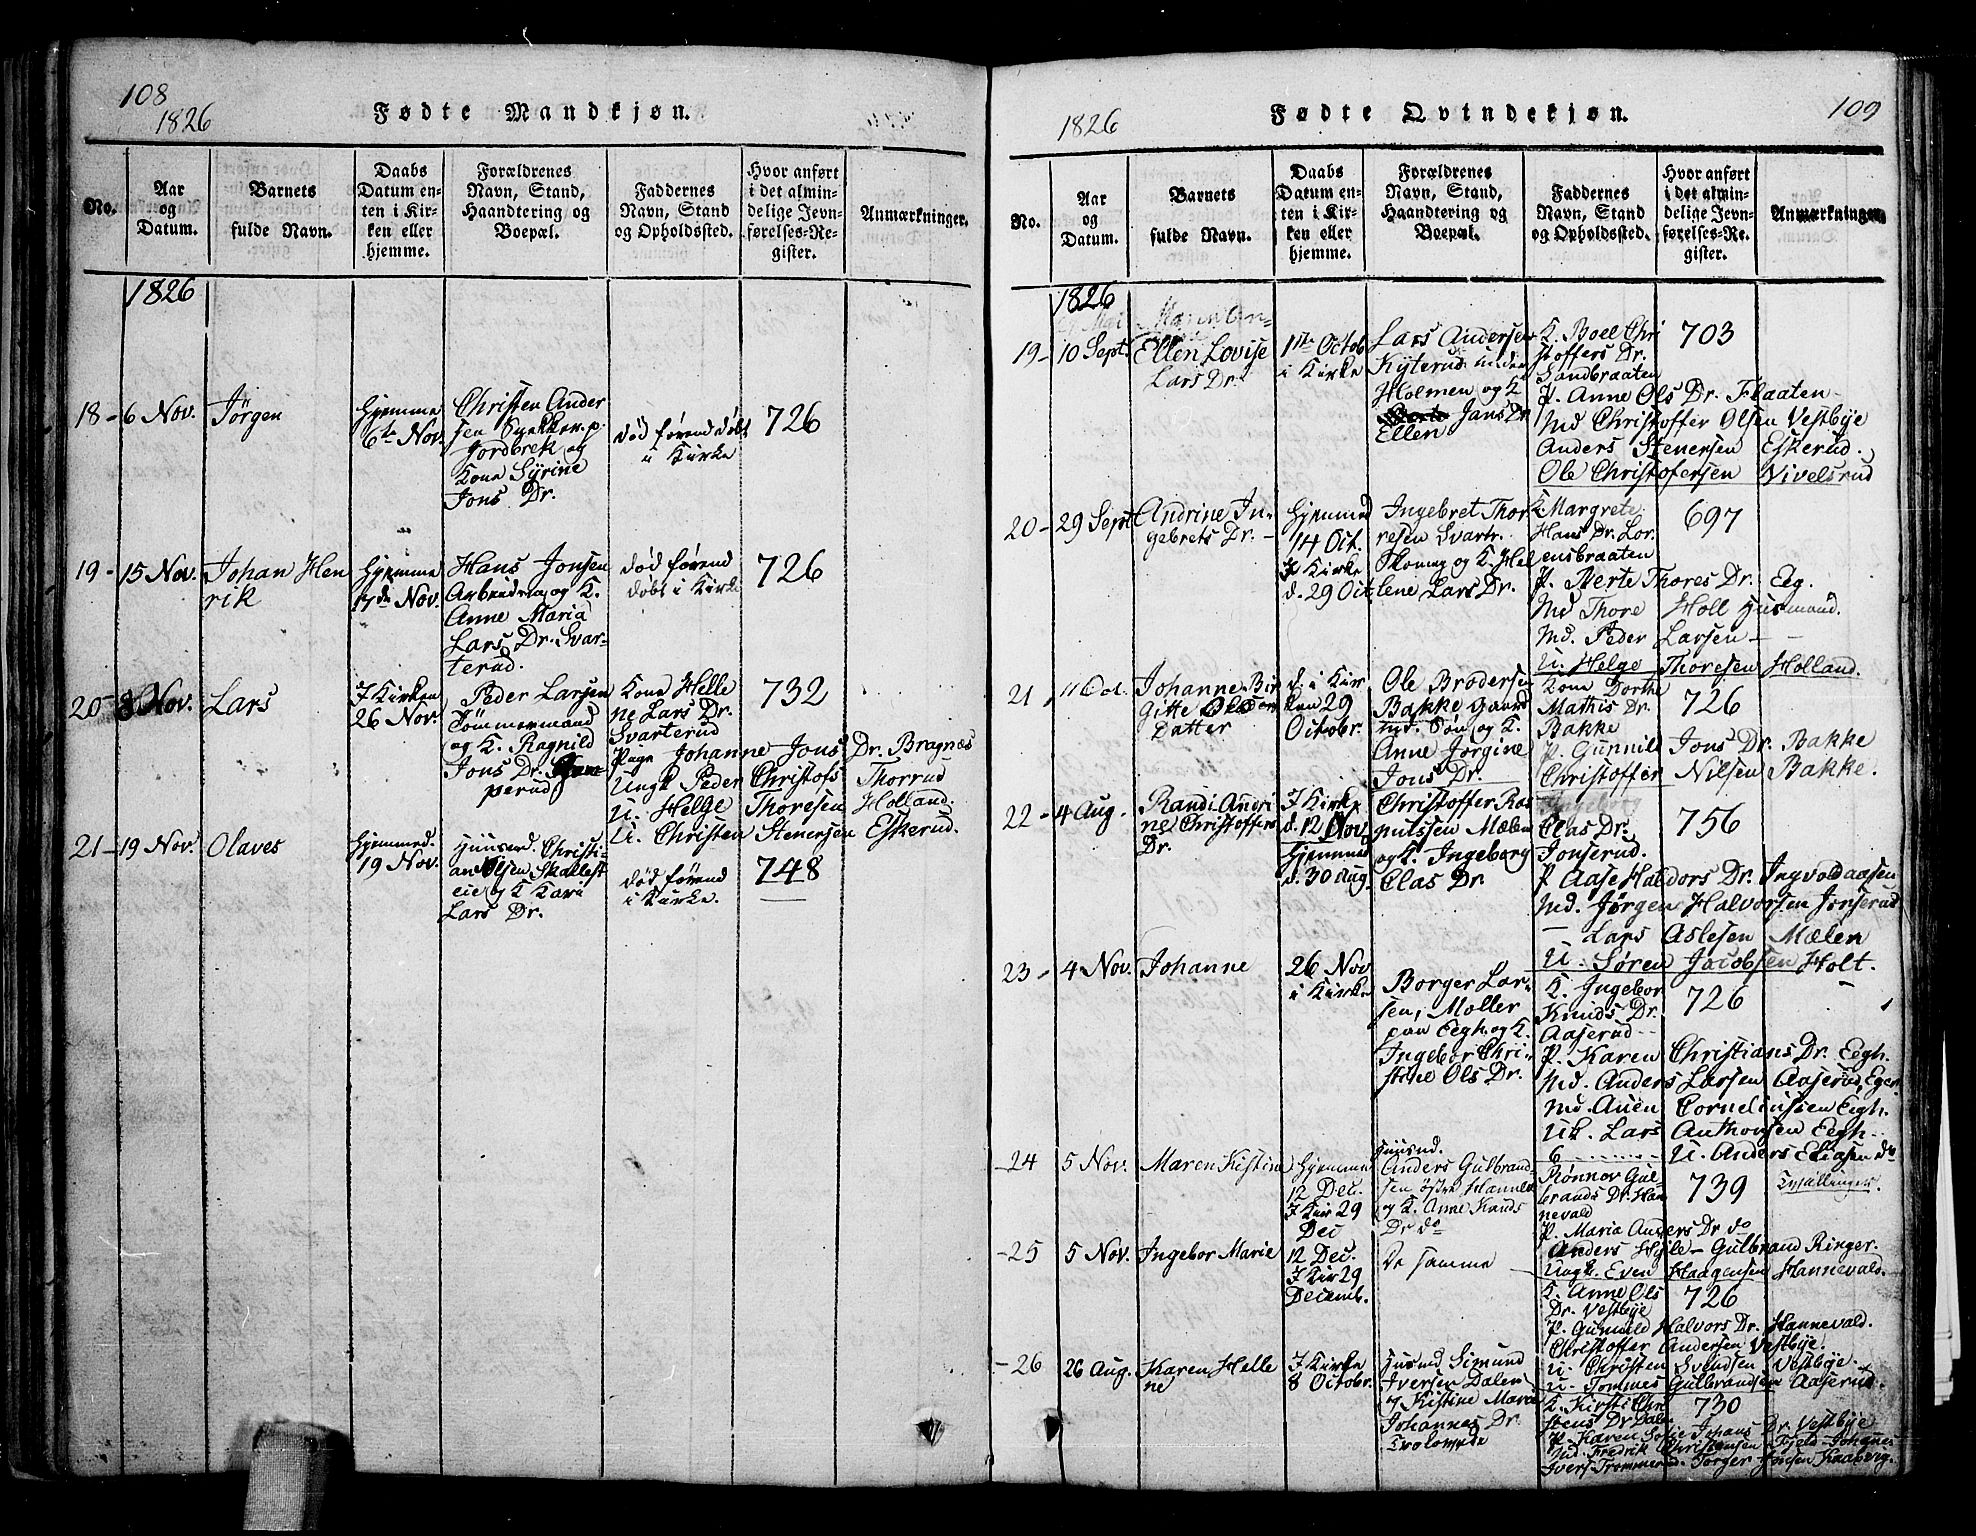 108
1826
Fødte Mandkjøn.
No.
Aar
og
Datum.
Barnets
fulde Navn.
Daabs
Datum en-
ten i Kir-
ken eller
hjemme.
Forældrenes
Navn, Stand,
Haandtering og
Boepæl.
Faddernes
Navn, Stand
og Opholdssted.
Hvor anført
i det almin-
delige Jevn-
førelses-Re-
gister.
Anmærkninger.
1826
18 - 6 Nov.
Jørgen
Hjemme
6te Nov.
Christen Ander
sen p.
Jordbrek og
Kone Syrine
Jons Dr.
død førend døbt
i Kirke
726
19 - 15 Nov.
Johan Hen
rik
Hjemme
17de Nov.
Hans Jonsen
og K.
Anne Maria
Lars Dr. Svar-
terud.
død førend
døbt i Kirke
726
20 - 8 Nov.
Lars
I Kirken
26 Nov.
Peder Larsen
Tömmermand
og K. Ragnild
Jons Dr.
perud
Kone Helle
ne Lars Dr.
Svarterud
Pige Johanne Jons Dr. Bragnæs
Ungk Peder Christofs Thorrud
U. Helge Thoresen Holland.
U. Christen Stenersen Eskerud.
732
21 - 19 Nov.
Olaves
Hjemmed.
19 Nov.
Huusmd. Christi-
an Olsen Skallest
eie og K Kari
Lars Dr.
død førend
i Kirke.
748
109
1826
Fødte Qvindekjøn.
No.
Aar
og
Datum.
Barnets
fulde Navn.
Daabs
Datum en-
ten i Kir-
ken eller
hjemme.
Forældrenes
Navn, Stand,
Haandtering og
Boepæl.
Faddernes
Navn, Stand
og Opholdssted.
Hvor anført
i det almin-
delige Jevn-
førelses-Re-
gister.
Anmærkninger.
1826
19 - 10 Sept.
Ellen Lovise
Lars Dr.
1ste Octob
i Kirke
Lars Andersen
Kyterud under
Holmen og K
Jans Dr
Ellen
K. Boel Chri
stoffers Dr.
Sandbraaten
P. Anne Ols Dr. Flaaten -
Md Christoffer Olsen Vestbye
Anders Stenersen Eskerud.
Ole Christofersen Nivelsrud
703
20 - 29 Sept
Andrine In-
gebrets Dr. -
Hjemmed
14 Oct.
I Kirke
d. 29 Oct
Ingebret Thor
resen Svartr.
Skoning og K. Hel
lene Lars Dr.
K Margrete
Hans Dr. Lor
ensbraaten
P. Berte Thores Dr. Eeg.
Md Thore Holl Husmand.
Md. Peder Larsen -
U. Helge Thoresen Holland.
697
21 , 11 Oct.
Johanne Bir
Gitte Olsen
Datter
d. i Kir
ken 29
Octobr.
Ole Brodersen
Bakke Gaard
md. Søn og K.
Anne Jorgine
Jons Dr.
Kone Dorthe
Mathis Dr.
Bakke
P. Gunnild Jons Dr. Bakke
Christoffer Nilsen Bakke.
726
22 - 4 Aug.
Randi Andri
ne Christoffers
Dr.
I Kirke
d. 12 Nov
Hjemme
d. 30 Aug.
Christoffer Ras
mussen Mælen
og K. Ingeborg
Clas Dr.
Ingeborg
Clas Dr.
Jonserud.
P Aase Haldors Dr. Ingvoldaasen
Md. Jørgen Halvorsen Jonserud
— Lars Aslesen Mælen
U. Søren Jacobsen Holt.
756
23 - 4 Nov.
Johanne
26 Nov
i Kirke
Borger Lar-
sen, Møller
paa Eegh og K.
Ingebor Chri-
stine Ols Dr.
K. Ingebor
Knuds Dr.
Aaserud
P. Karen Christians Dr. Eegh.
Md. Anders Larsen Aaserud, Eger
Md. Auen Corneliussen Eegh.
Uk. Lars Anthonsen Eegh
U. Anders Eliasen do
726
24 5 Nov.
Maren Kistine
Hjemme
12 Dec.
I Kir 29
Dec
Huusmd.
Anders Gulbrand-
sen østre Hannev
og K. Anne Knuds
Dr do
Rønnov Gul-
brands Dr. Han
nevald
P. Maria Anders Dr do
Anders Hyle - Gulbrand Ringer.
Ungk. Even Haagensen Hannevald.
739
Tvillinger.
- 25 5 Nov.
Ingebor Marie
12 Dec.
I Kir 29
Decemb.
De samme
K. Anne Ols
Dr. Vestbye
P. Gunnild Halvors Dr. Hannevald.
Christoffer Andersen Vestbye.
U Christen Svendsen Vestbye.
U. Tommes Gulbrandsen Aaserud.
726
- 26 26 Aug.
Karen Helle
ne
I Kirke
8 Octobr.
Huusmd Simund
Iversen Dalen
og Kistine Marie
Johannes Dr.
K. Kirsti Chri
stens Dr Dalen
P. Karen Sofie Johans Dr Vestbye
Md. Fredrik Christensen Fjeld - Johannes
Ivers Trommerud Jørger Jensen Kaaberg.
730